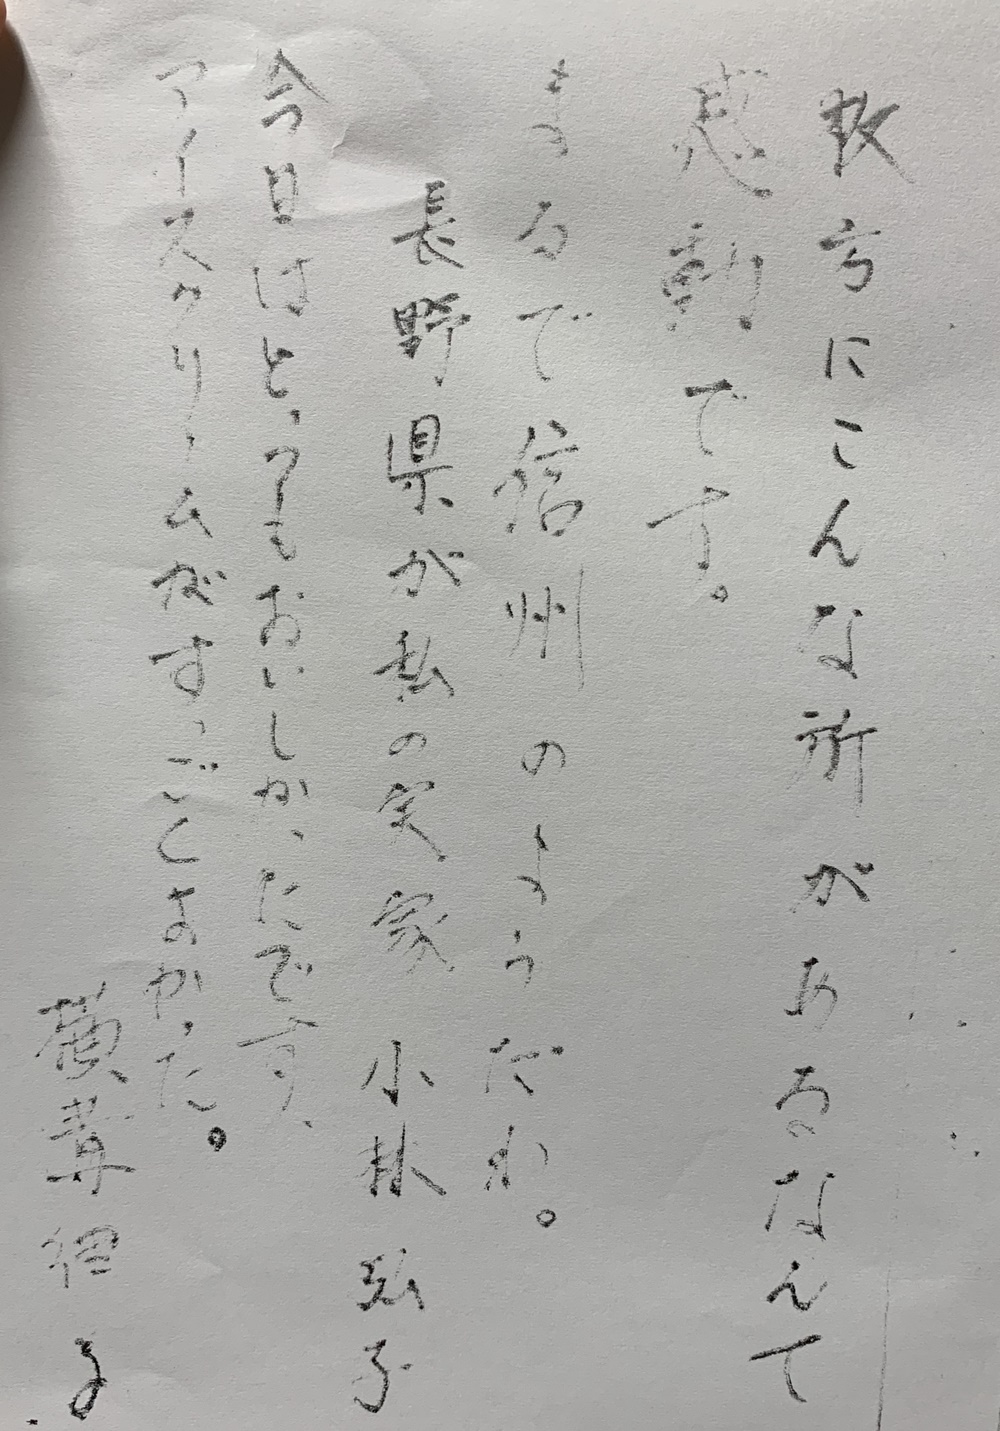 枚方にこんな所があるなんて
感動です。
まるで信州のようだわ。
長野県が私の実家 小林 弘子
今日はとってもおいしかったです、
アイスクリームがすっごくよかった。